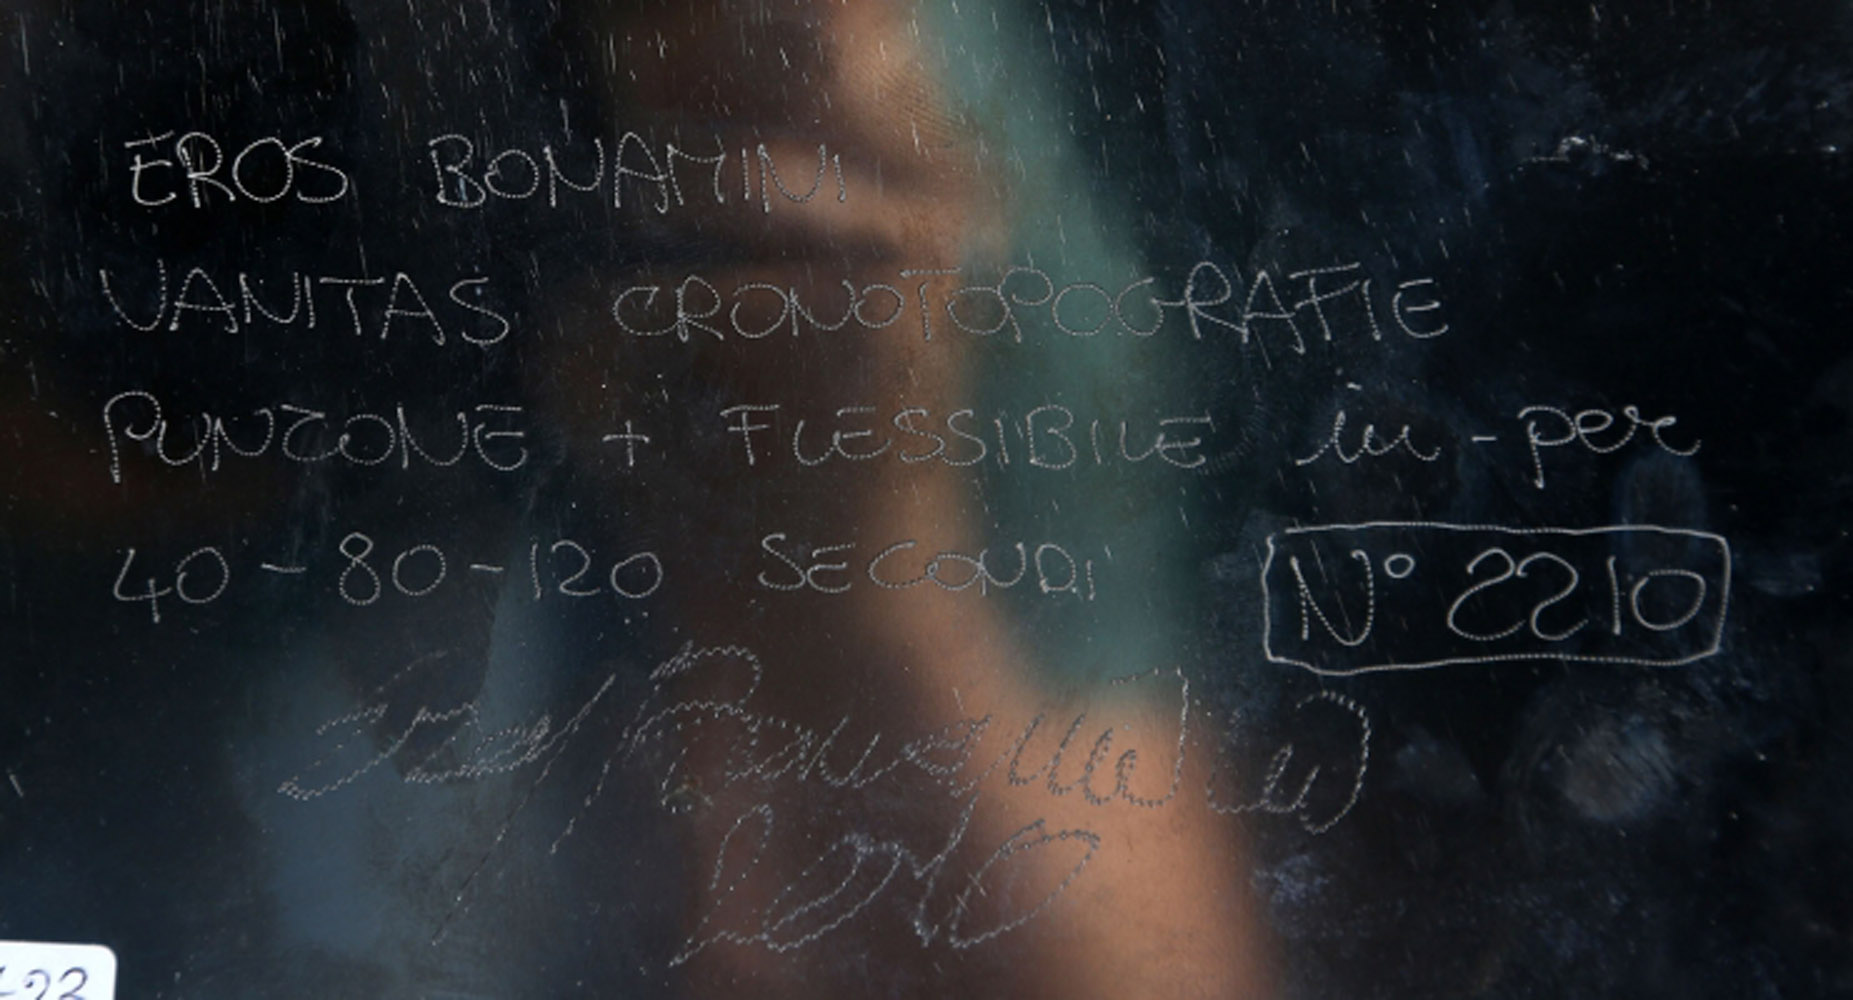 EROS BONAMINI
VANITAS CRONOTOPOGRAFIE
PUNZONE + FLESSIBILE in - per
40-80-120 SECONDI
N° 2210
Eros Bonamini
2010
-23